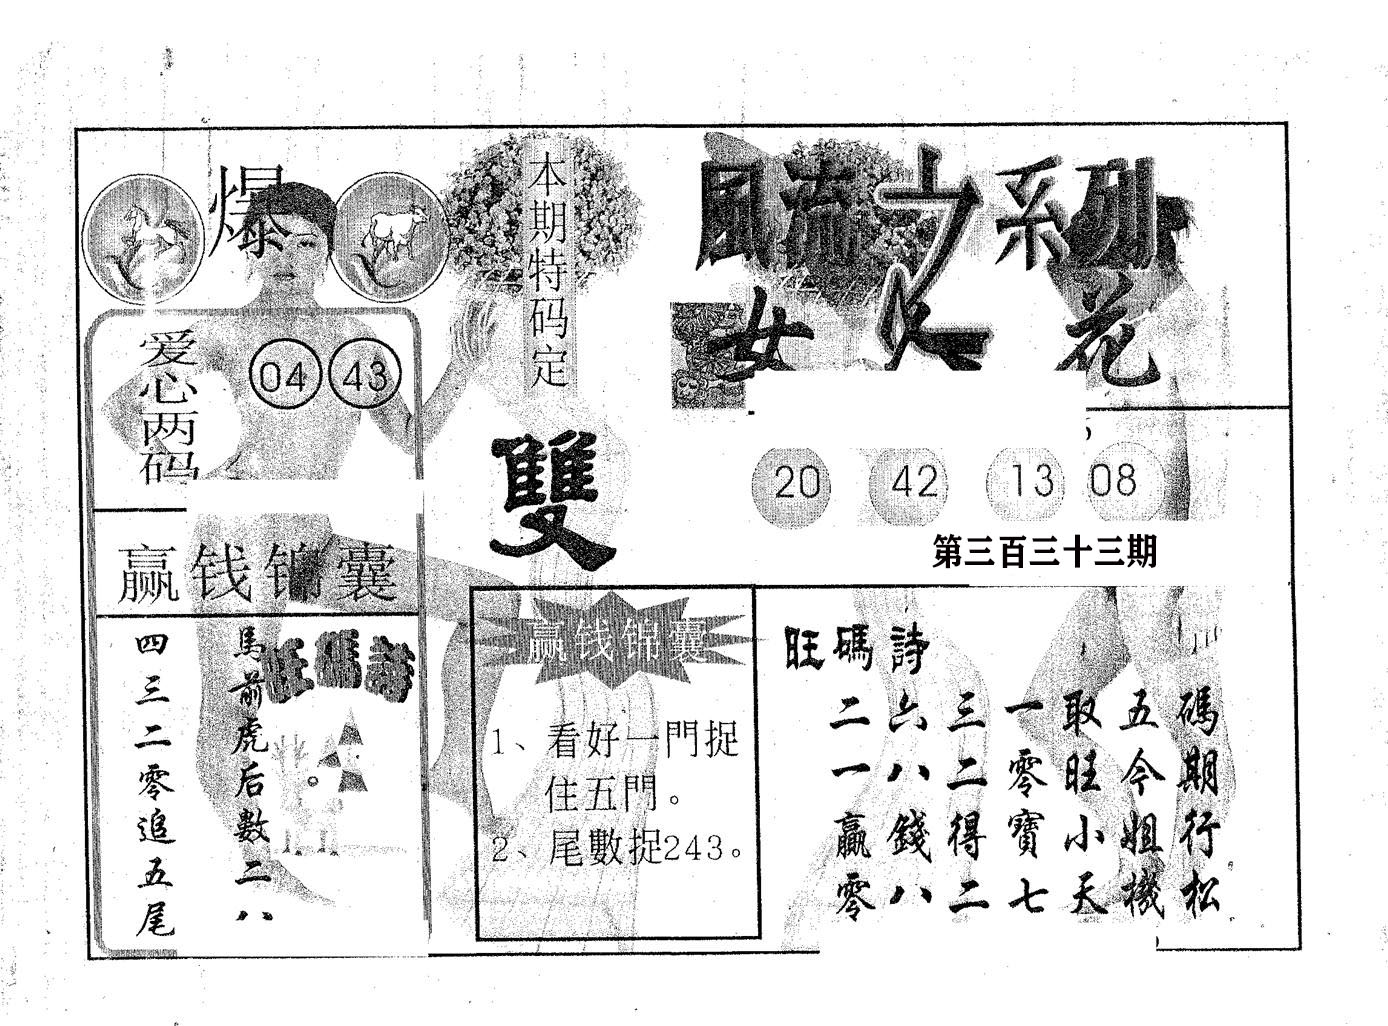 爆
本期特码定
風流之系列
女人花
爱心两码
04 43
雙
20 42 13 08
第三百三十三期
赢钱锦囊
旺碼詩
馬前虎后數二八
四三二零追五尾
赢钱锦囊
1、看好一門捉
住五門。
2、尾數捉243。
旺碼詩
碼期行松
五今姐機
取旺小天
一零寶七
三二得二
六八錢八
二一贏零